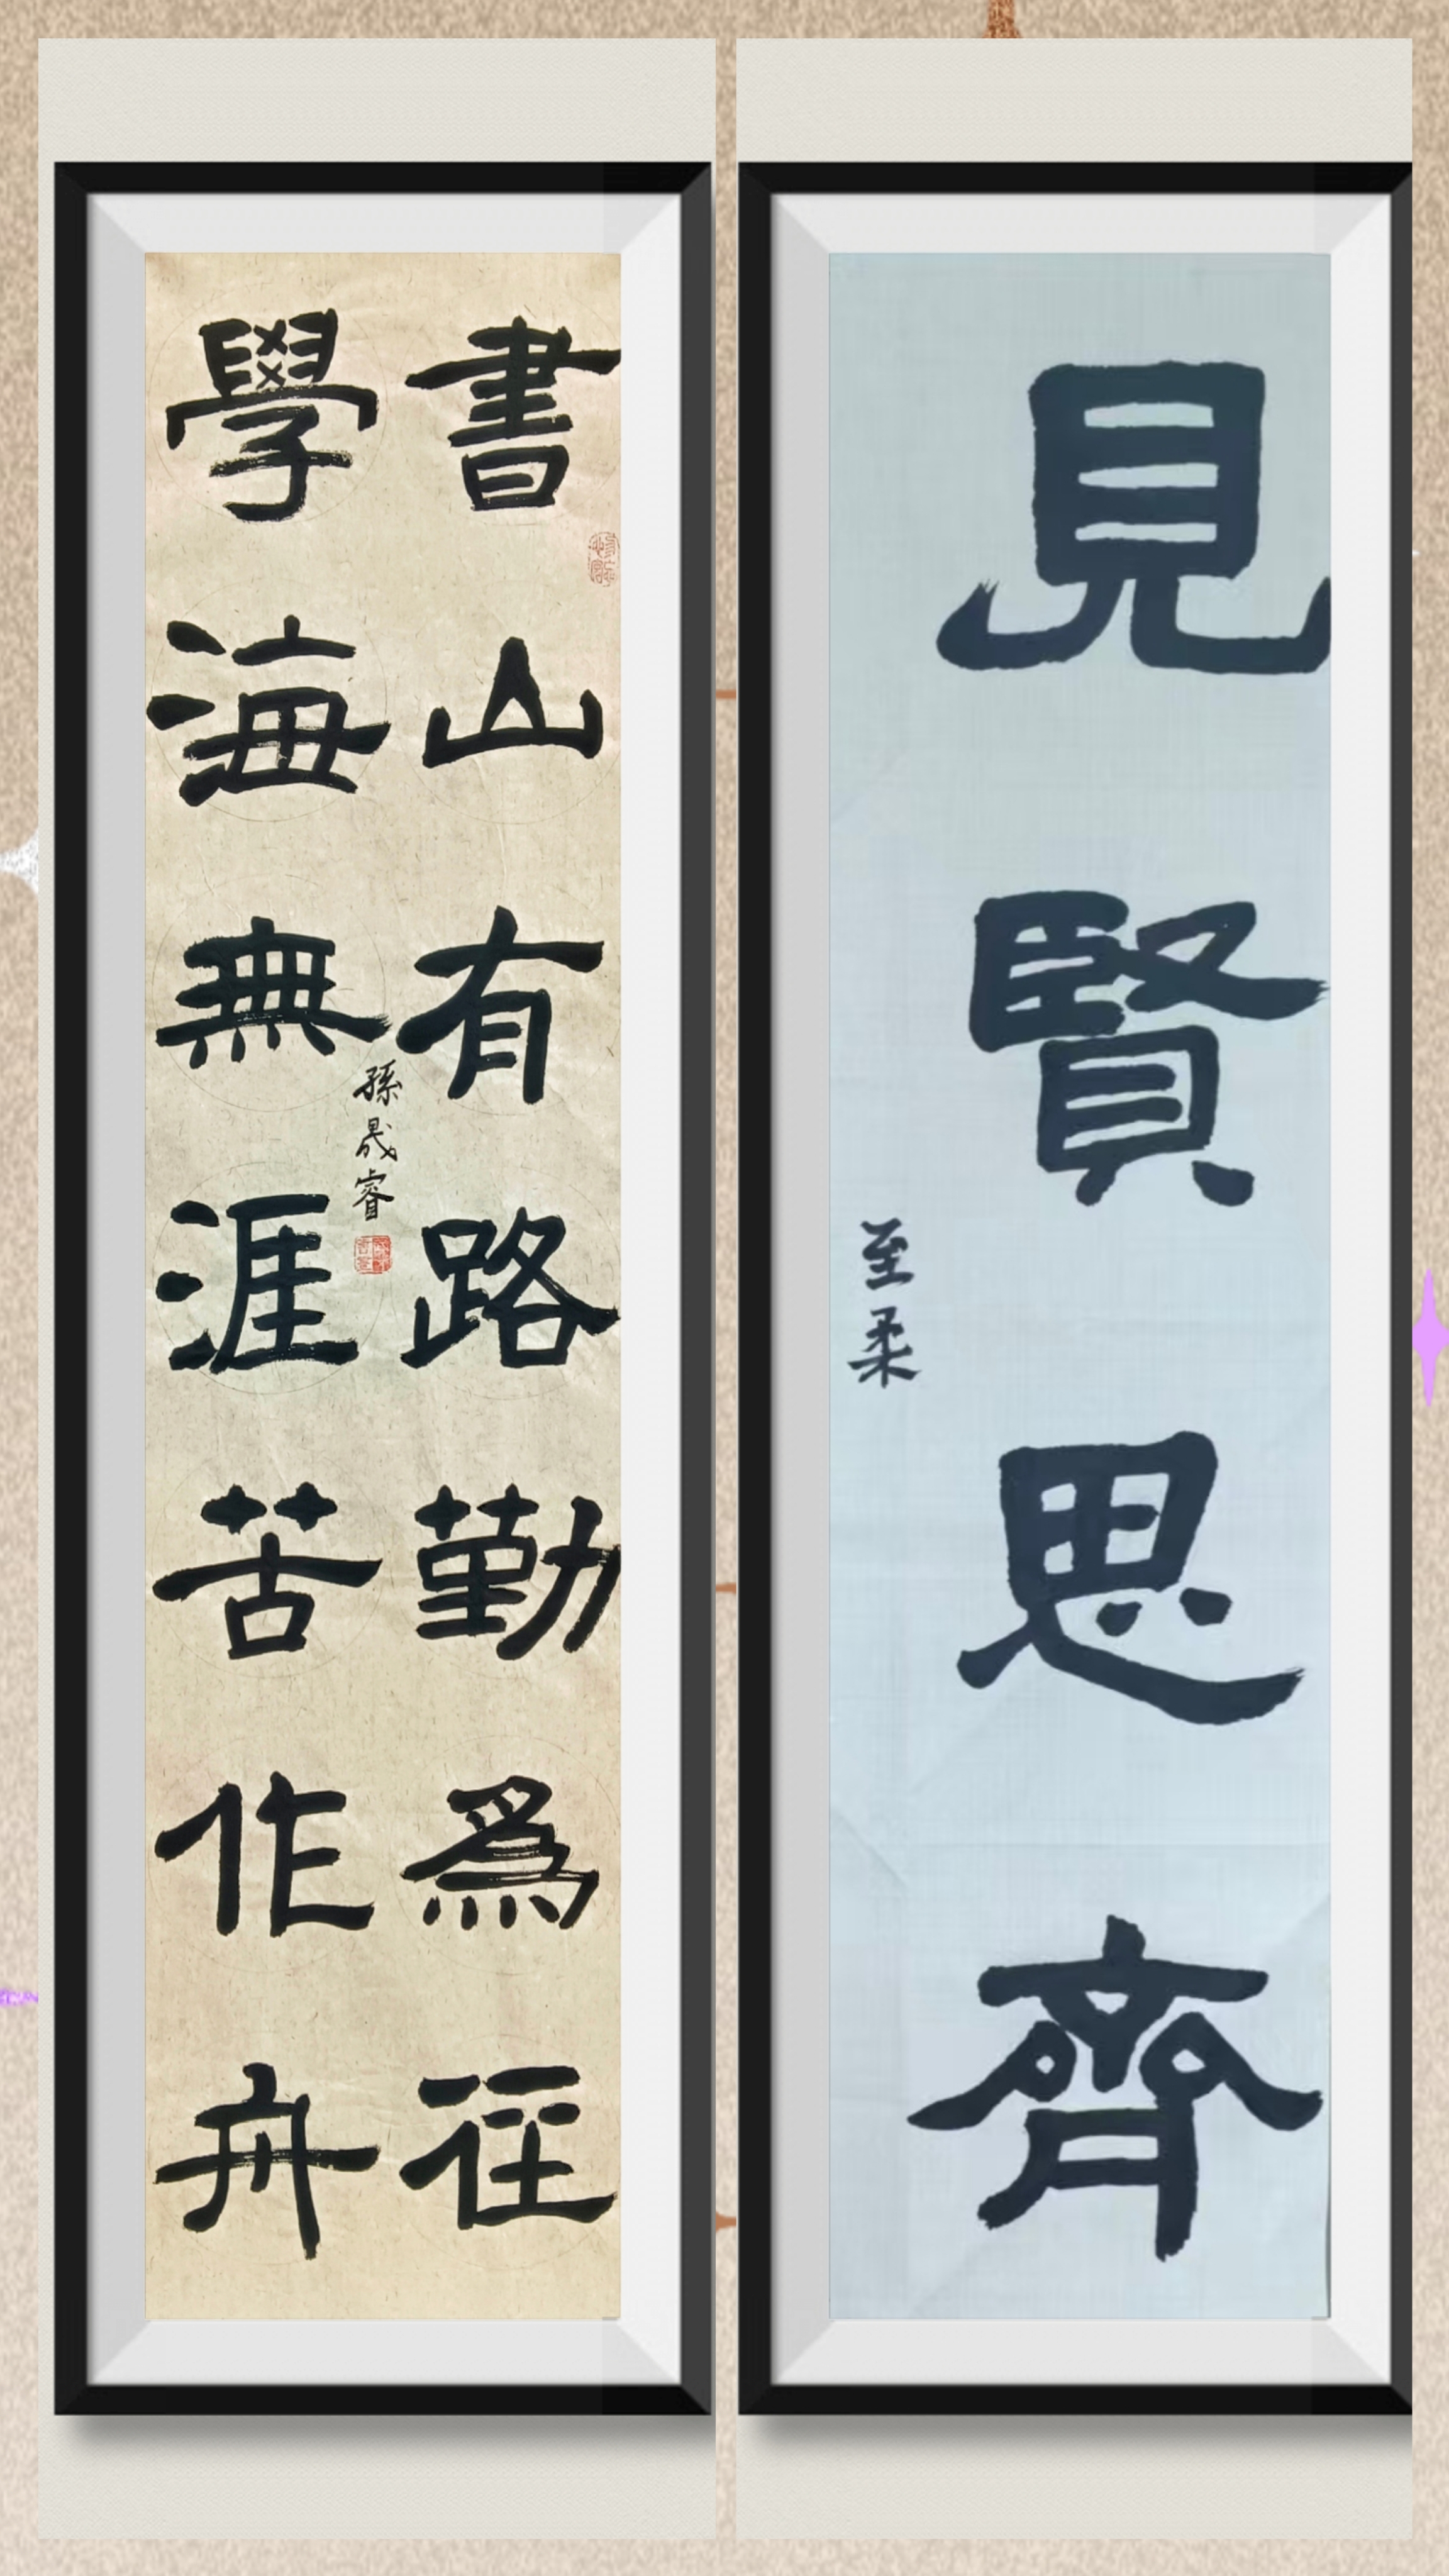 書山有路勤爲徑
學海無涯苦作舟
孫晟睿
見賢思齊
至柔